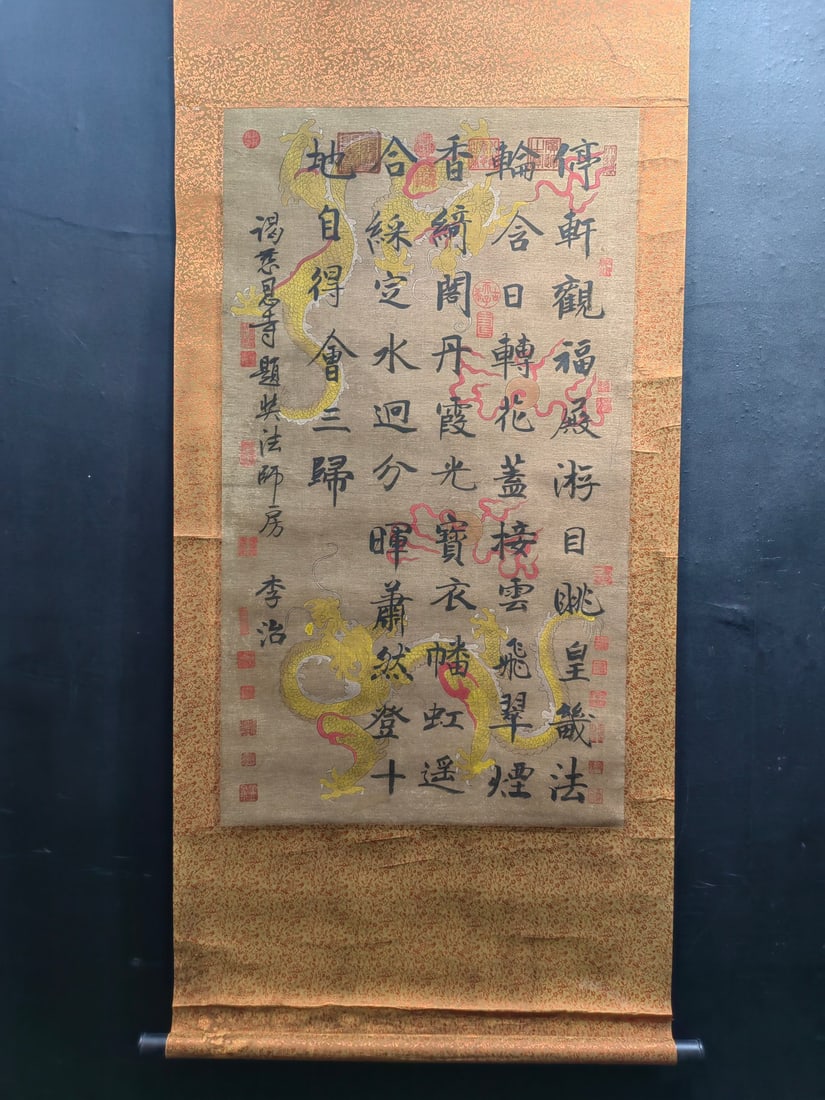 停軒觀福殿游目眺皇畿法
輪含日轉花蓋接雲飛翠煙
香綺閣丹霞光寶衣幡虹遥
合綵定水迥分暉蕭然登十
地自得會三歸
謁慈恩寺題奘法師房 李治